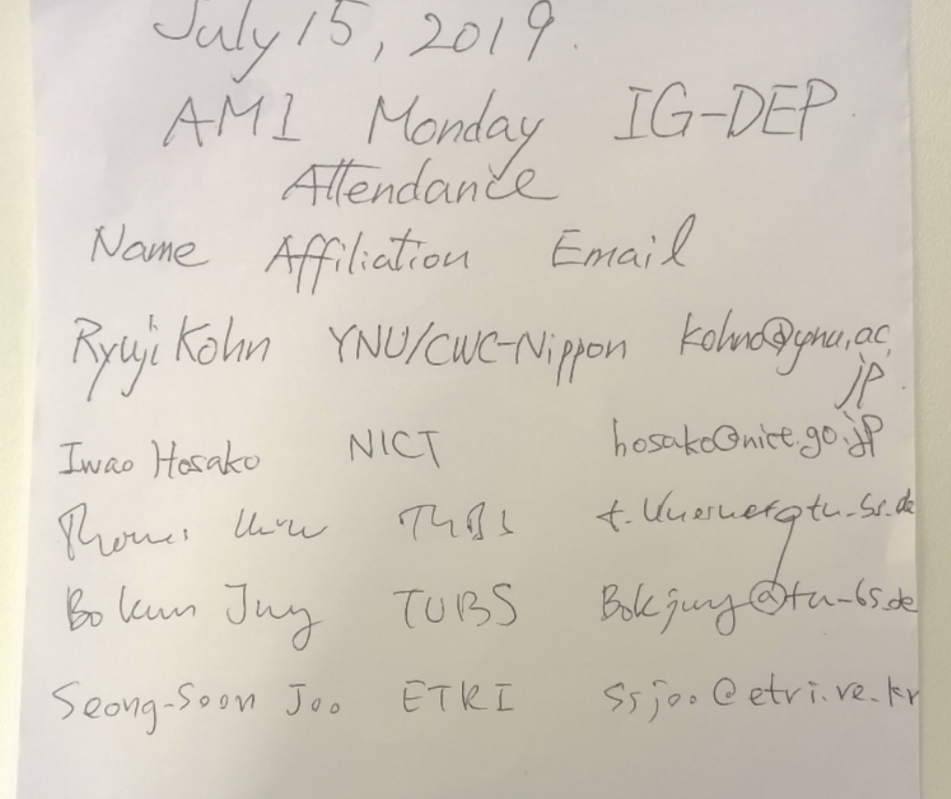 July 15, 2019.
AM1 Monday IG-DEP
Attendance
Name Affiliation Email
Ryuji Kohn YNU/CWC-Nippon kohno@ynu.ac.
jp
Iwao Hosako NICT hosako@nict.go.jp
TUBS
Bokun Jung TUBS Bokjung@tu-bs.de
Seong-Soon Joo ETRI ssjoo@etri.re.kr